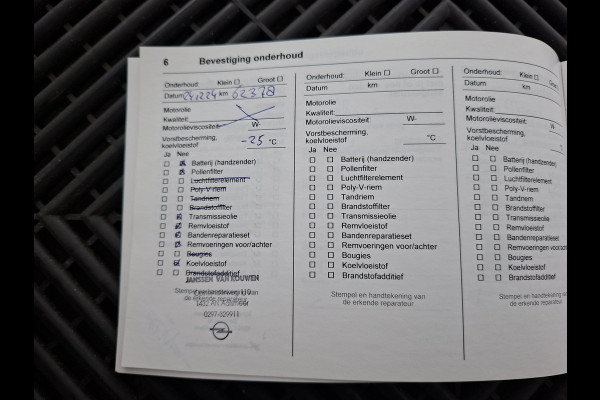 6 Bevestiging onderhoud
Onderhoud: Klein ☐ Groot ☐
Datum 241224 km 62378
Motorolie
Kwaliteit:
Motorolieviscositeit: W-
Vorstbescherming,
koelvloeistof -25 °C
Ja Nee
Batterij (handzender)
Pollenfilter
Luchtfilterelement
Poly-V-riem
Tandriem
Brandstoffilter
Transmissieolie
Remvloeistof
Bandenreparatieset
Remvoeringen voor/achter
Bougies
Koelvloeistof
Brandstofadditief
JANSSEN VAN KOUWEN
Stempel en handtekening van
de erkende reparateur
0297-329911
Onderhoud: Klein ☐ Groot ☐
Datum km
Motorolie
Kwaliteit:
Motorolieviscositeit: W-
Vorstbescherming,
koelvloeistof °C
Ja Nee
Batterij (handzender)
Pollenfilter
Luchtfilterelement
Poly-V-riem
Tandriem
Brandstoffilter
Transmissieolie
Remvloeistof
Bandenreparatieset
Remvoeringen voor/achter
Bougies
Koelvloeistof
Brandstofadditief
Stempel en handtekening van
de erkende reparateur
Onderhoud: Klein ☐ Groot ☐
Datum km
Motorolie
Kwaliteit:
Motorolieviscositeit: W-
Vorstbescherming,
koelvloeistof °C
Ja Nee
Batterij (handzender)
Pollenfilter
Luchtfilterelement
Poly-V-riem
Tandriem
Brandstoffilter
Transmissieolie
Remvloeistof
Bandenreparatieset
Remvoeringen voor/achter
Bougies
Koelvloeistof
Brandstofadditief
Stempel en handtekening van
de erkende reparateur